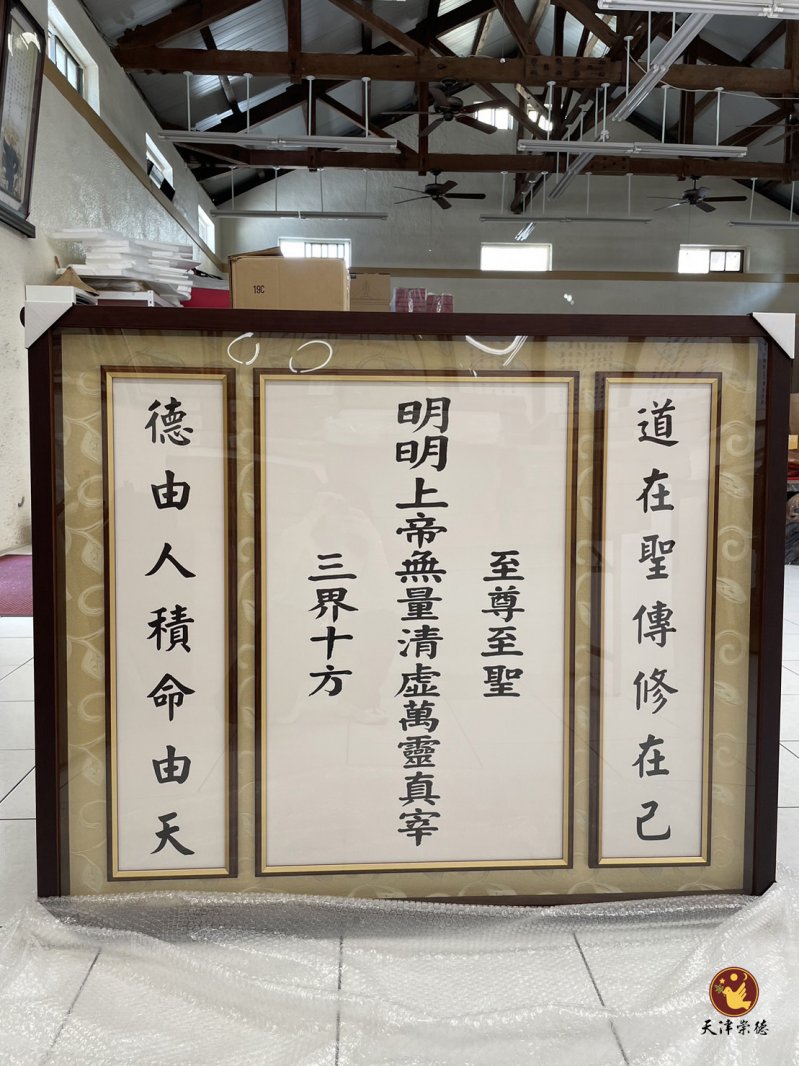 道在聖傳修在己
至尊至聖
明明上帝無量清虛萬靈真宰
三界十方
德由人積命由天
19C
天津崇德